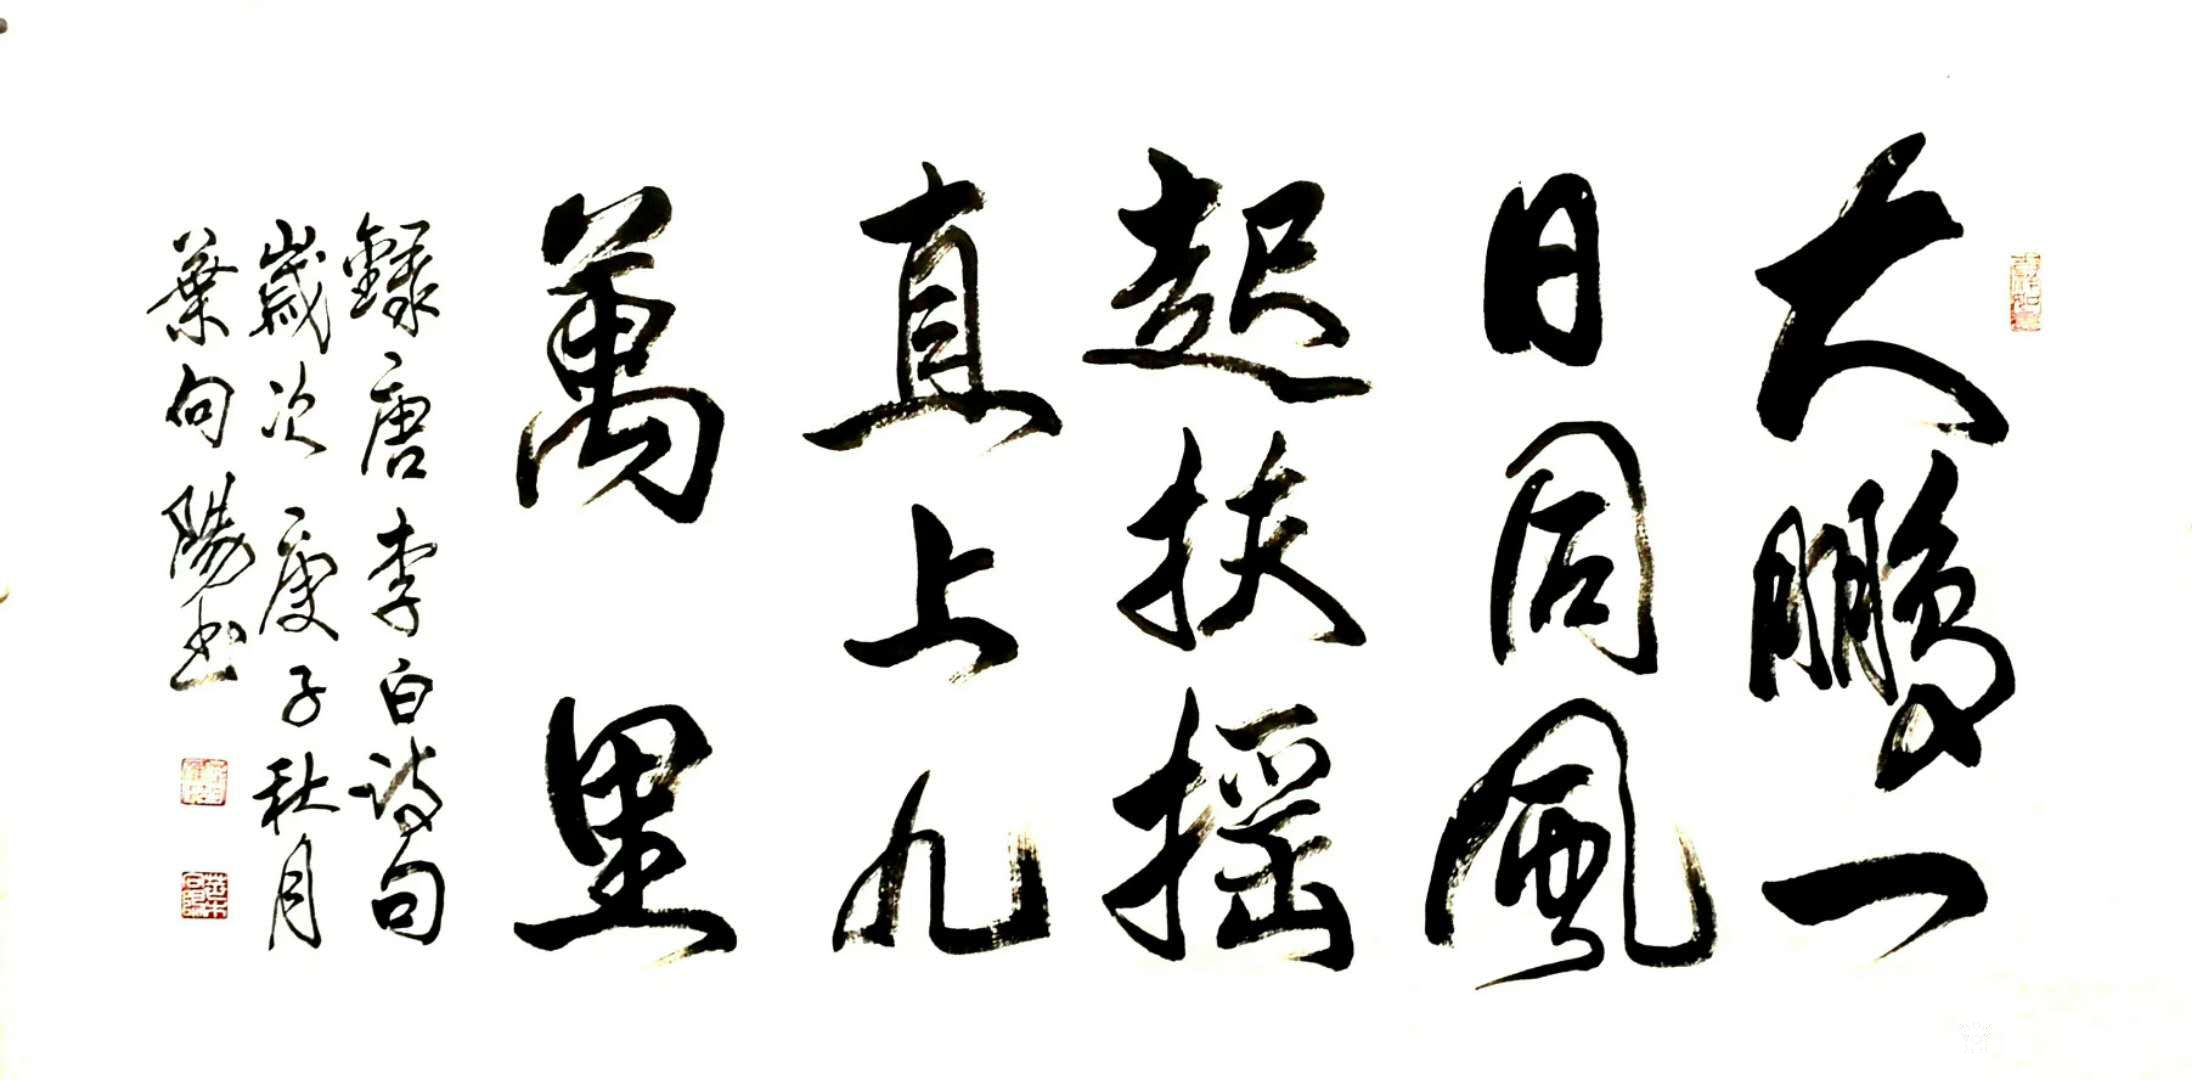 大鹏一
日同風
起扶摇
直上九
萬里
録唐李白詩句
歲次庚子秋月
葉向陽书